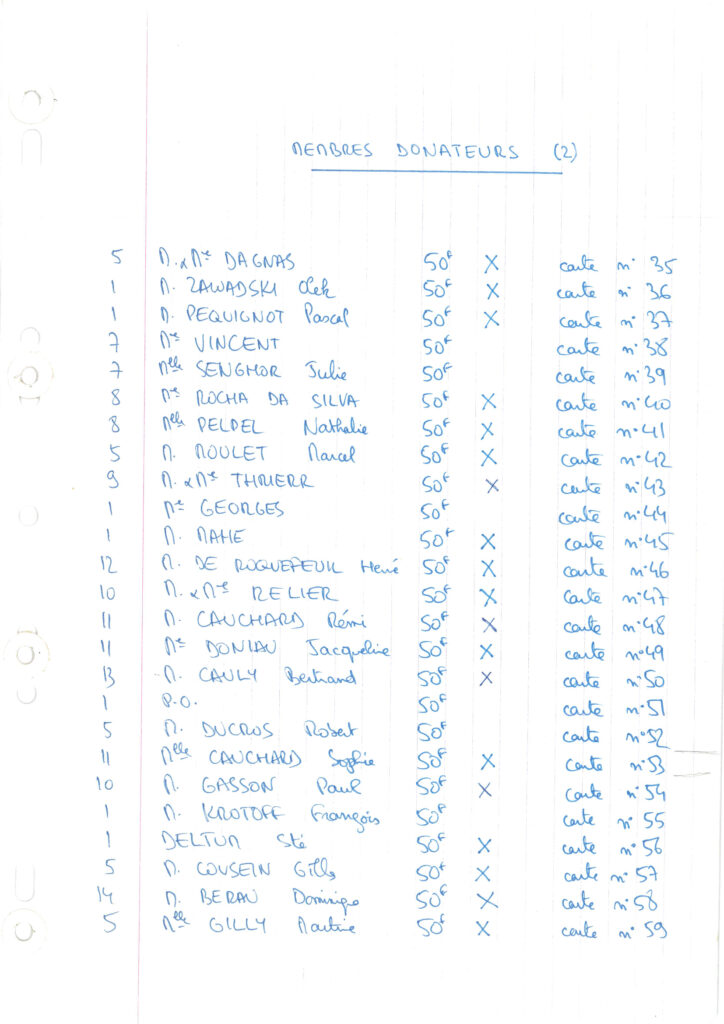 MEMBRES DONATEURS (2)
5 M. & Me DAGNAS 50F X carte n° 35
1 M. ZAWADSKI Olek 50F X carte n° 36
1 M. PEQUIGNOT Pascal 50F X carte n° 37
7 Me VINCENT 50F carte n° 38
7 Melle SENGHOR Julie 50F carte n° 39
8 Me ROCHA DA SILVA 50F X carte n° 40
8 Melle PELPEL Nathalie 50F X carte n° 41
5 M. MOULET Marcel 50F X carte n° 42
9 M. & Me 50F X carte n° 43
1 Me GEORGES 50F carte n° 44
1 M. MAHE 50F X carte n° 45
12 M. DE ROQUEFEUIL Hervé 50F X carte n° 46
10 M. & Me RELIER 50F X carte n° 47
11 M. CAUCHARD Rémi 50F X carte n° 48
11 Me DONIAU Jacqueline 50F X carte n° 49
13 M. CAULY Bertrand 50F X carte n° 50
1 P.O. 50F carte n° 51
5 M. DUCROS Robert 50F carte n° 52
11 Melle CAUCHARD Sophie 50F X carte n° 53
10 M. GASSON Paul 50F X carte n° 54
1 M. KROTOFF François 50F carte n° 55
1 DELTUM Sté 50F X carte n° 56
5 M. COUSEIN Gilles 50F X carte n° 57
14 M. BERAU Dominique 50F X carte n° 58
5 Melle GILLY Martine 50F X carte n° 59